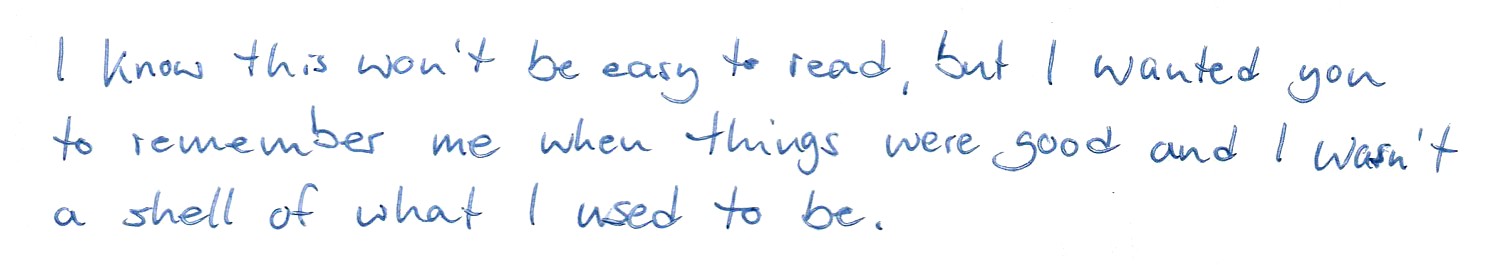 I know this won't be easy to read, but I wanted you
to remember me when things were good and I wasn't
a shell of what I used to be.